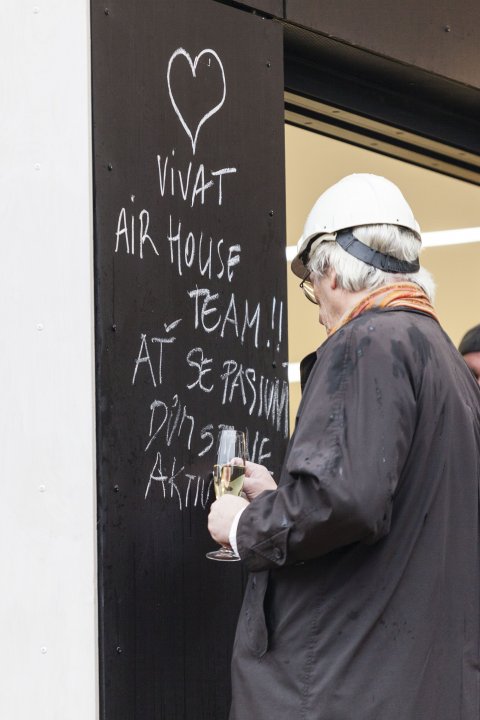 VIVAT
AIR HOUSE
TEAM!!
AŤ SE PASIVNÍ
DŮM STANE